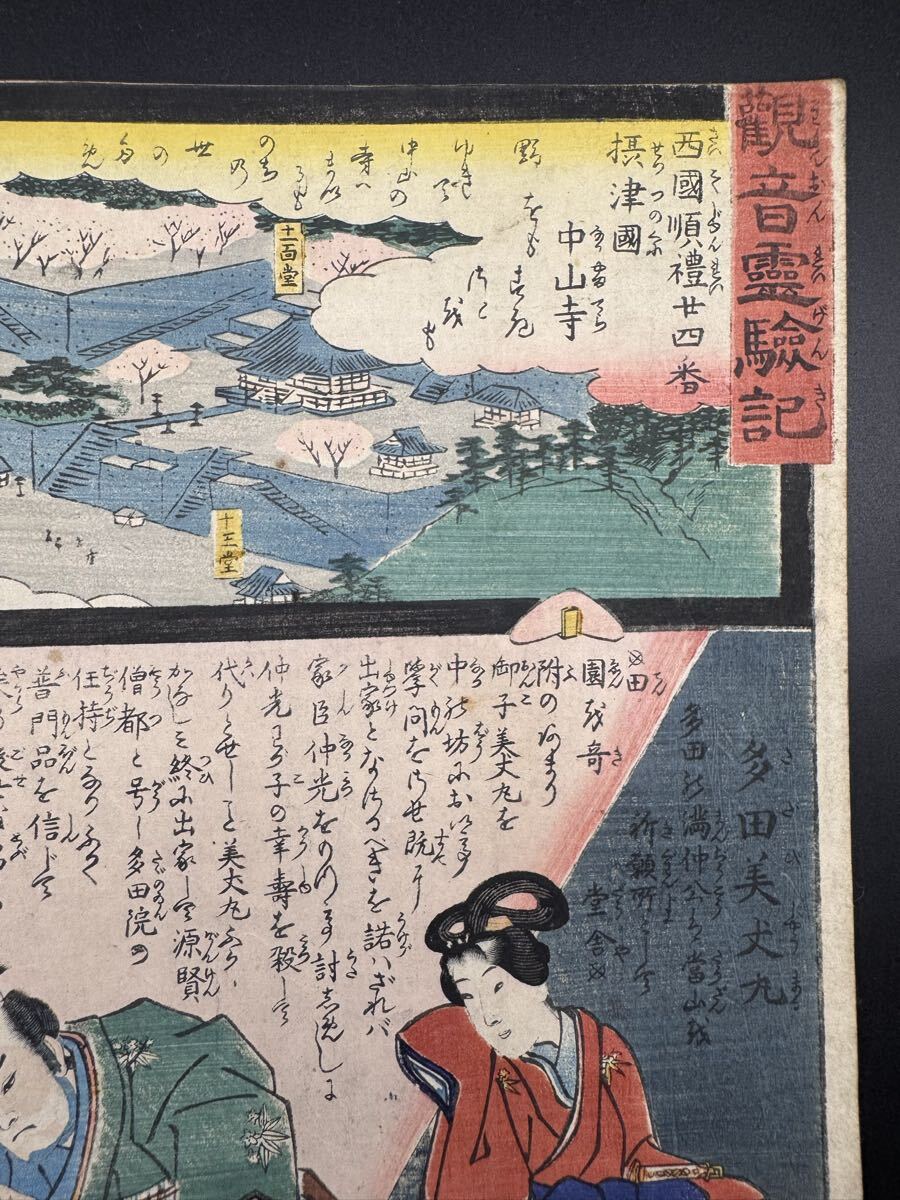 觀音靈驗記
西國順禮廿四番
摂津國
中山寺
野をもすぎ
里をも
ゆきて
中山の
寺へ
まゐる
のちの
世の
ため
十一面堂
十王堂
多田美丈丸
多田の満仲公ハ當山を
祈願所として
堂舎田
園を寄
附のあまり
御子美丈丸を
中の坊において
學問をさせ既に
出家となさるべきを諾ハざれバ
家臣仲光をめして討しめしに
仲光わが子の幸壽を殺して
代りとせしと美丈丸ふかく
かなしみ終に出家して源賢
僧都と号し多田院の
住持となりふかく
普門品を信じて